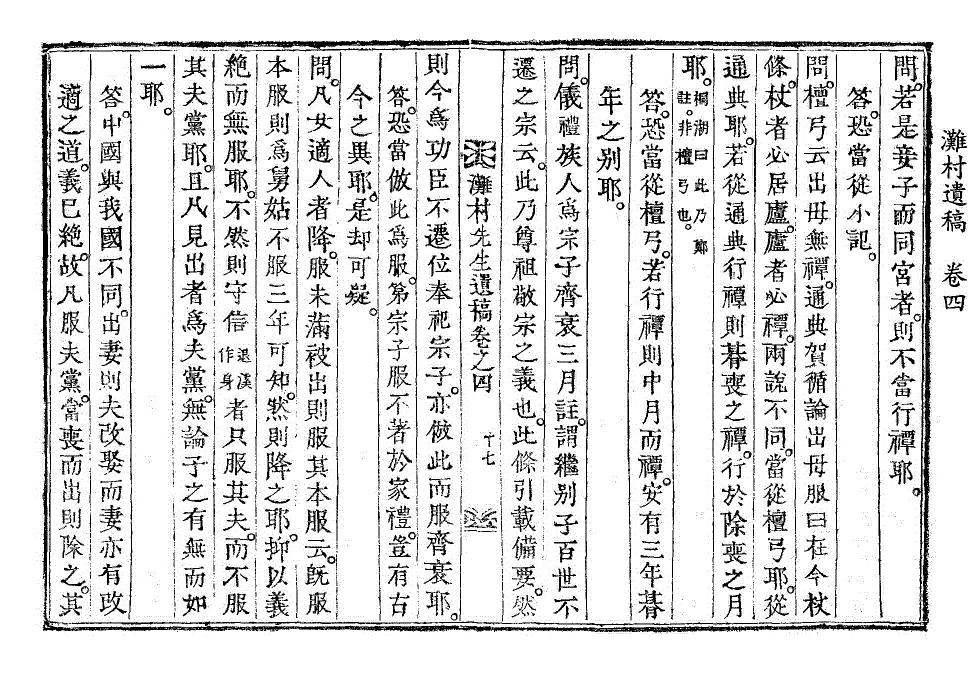 灘村遺稿　卷四
問。若是妾子而同宮者。則不當行禫耶。
答。恐當從小記。
問。檀弓云出母無禫。通典賀循論出母服曰在今杖
條。杖者必居廬。廬者必禫。兩說不同。當從檀弓耶。從
通典耶。若從通典行禫則朞喪之禫。行於除喪之月
耶。桐湖曰此乃鄭註。非檀弓也。
答。恐當從檀弓。若行禫則中月而禫。安有三年朞
年之別耶。
問。儀禮族人爲宗子齊衰三月註。謂繼別子百世不
遷之宗云。此乃尊祖敬宗之義也。此條引載備要。然
灘村先生遺稿卷之四　十七
則今爲功臣不遷位奉祀宗子。亦倣此而服齊衰耶。
答。恐當倣此爲服。第宗子服不著於家禮。豈有古
今之異耶。是却可疑。
問。凡女適人者降。服未滿被出則服其本服云。旣服
本服則爲舅姑不服三年可知。然則降之耶。抑以義
絶而無服耶。不然則守信退溪作身者只服其夫。而不服
其夫黨耶。且凡見出者爲夫黨。無論子之有無而如
一耶。
答。中國與我國不同。出妻則夫改娶而妻亦有改
適之道。義已絶。故凡服夫黨。當喪而出則除之。其